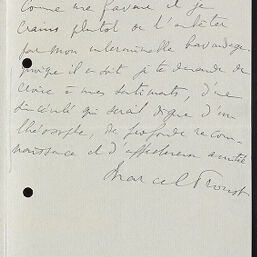 comme une faveur et je
crains plutôt de l'
par mon interminable bavardage.
quoiqu'il en soit, je te demande de
croire à mes sentiments, d'une
sincérité qui serait digne d'un
théosophe, de profonde recon-
naissance et d'affectueuse amitié
Marcel Proust